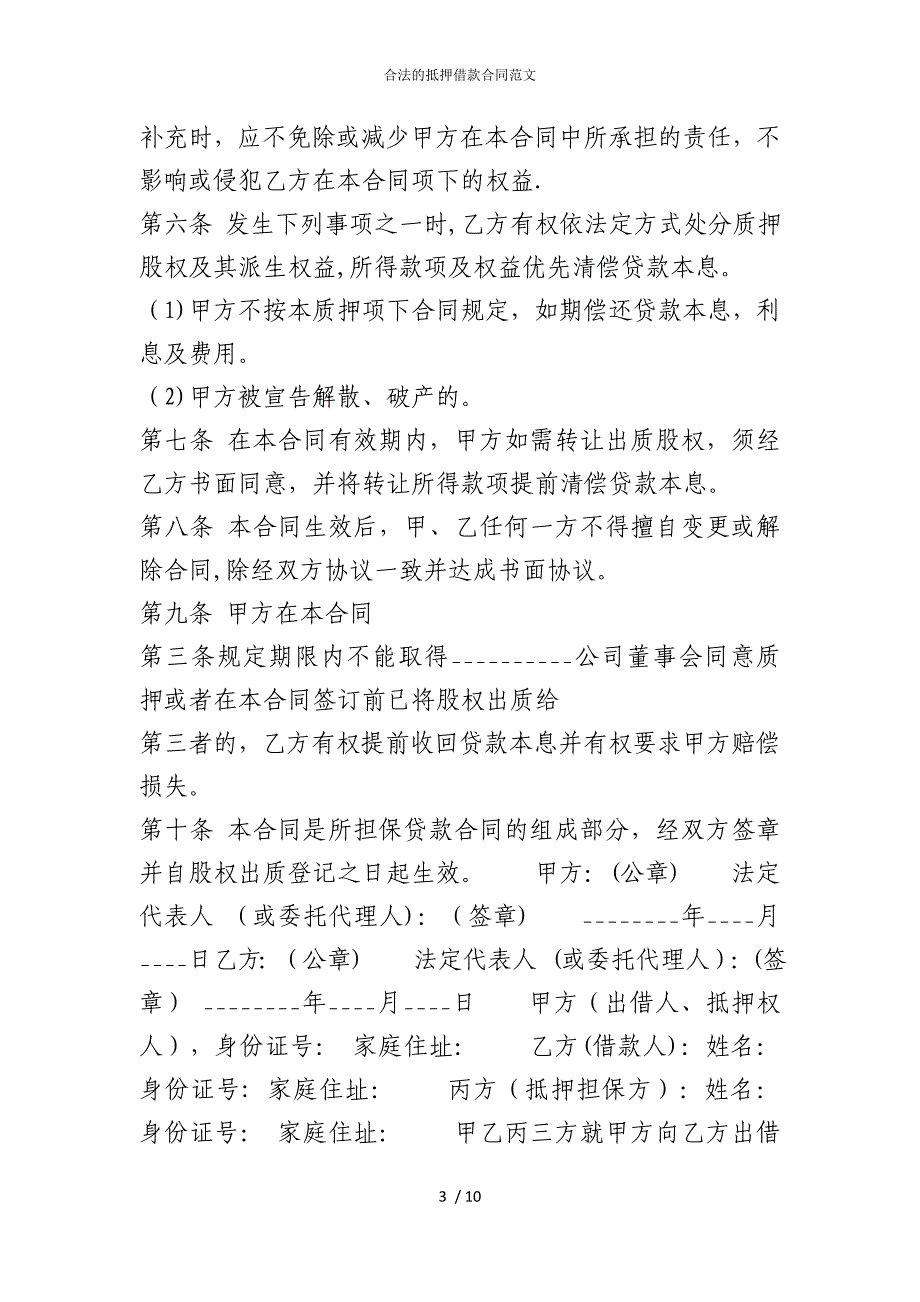 合法的抵押借款合同范文
补充时，应不免除或减少甲方在本合同中所承担的责任，不
影响或侵犯乙方在本合同项下的权益.
第六条 发生下列事项之一时,乙方有权依法定方式处分质押
股权及其派生权益,所得款项及权益优先清偿贷款本息。
（1)甲方不按本质押项下合同规定，如期偿还贷款本息，利
息及费用。
（2)甲方被宣告解散、破产的。
第七条 在本合同有效期内，甲方如需转让出质股权，须经
乙方书面同意，并将转让所得款项提前清偿贷款本息。
第八条 本合同生效后，甲、乙任何一方不得擅自变更或解
除合同,除经双方协议一致并达成书面协议。
第九条 甲方在本合同
第三条规定期限内不能取得----------公司董事会同意质
押或者在本合同签订前已将股权出质给
第三者的，乙方有权提前收回贷款本息并有权要求甲方赔偿
损失。
第十条 本合同是所担保贷款合同的组成部分，经双方签章
并自股权出质登记之日起生效。 甲方：(公章) 法定
代表人 （或委托代理人)：（签章) --------年----月
----日乙方:（公章) 法定代表人 (或委托代理人）：(签
章） --------年----月----日 甲方（出借人、抵押权
人），身份证号： 家庭住址： 乙方(借款人)：姓名：
身份证号: 家庭住址： 丙方（抵押担保方）：姓名：
身份证号： 家庭住址： 甲乙丙三方就甲方向乙方出借
3 / 10